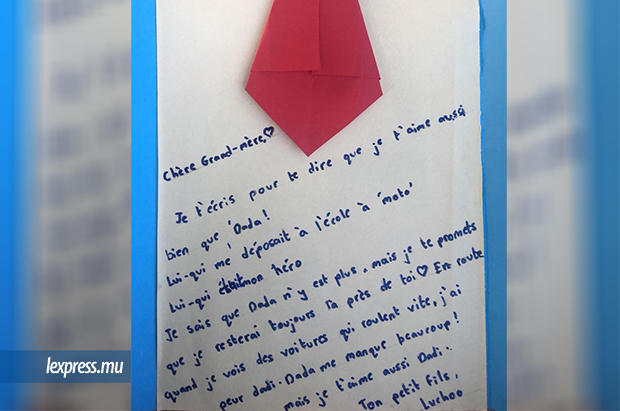 Chère Grand-mère,♡
Je t'écris pour te dire que je t'aime aussi
bien que 'Dada!
Lui-qui me déposait à l'école à 'moto'
Lui-qui était mon héro
Je sais que Dada n'y est plus, mais je te promets
que je resterai toujours là près de toi♡ En route
quand je vois des voitures qui roulent vite, j'ai
peur dadi. Dada me manque beaucoup!
mais je t'aime aussi Dadi..
Ton petit fils,
Luchoo
lexpress.mu